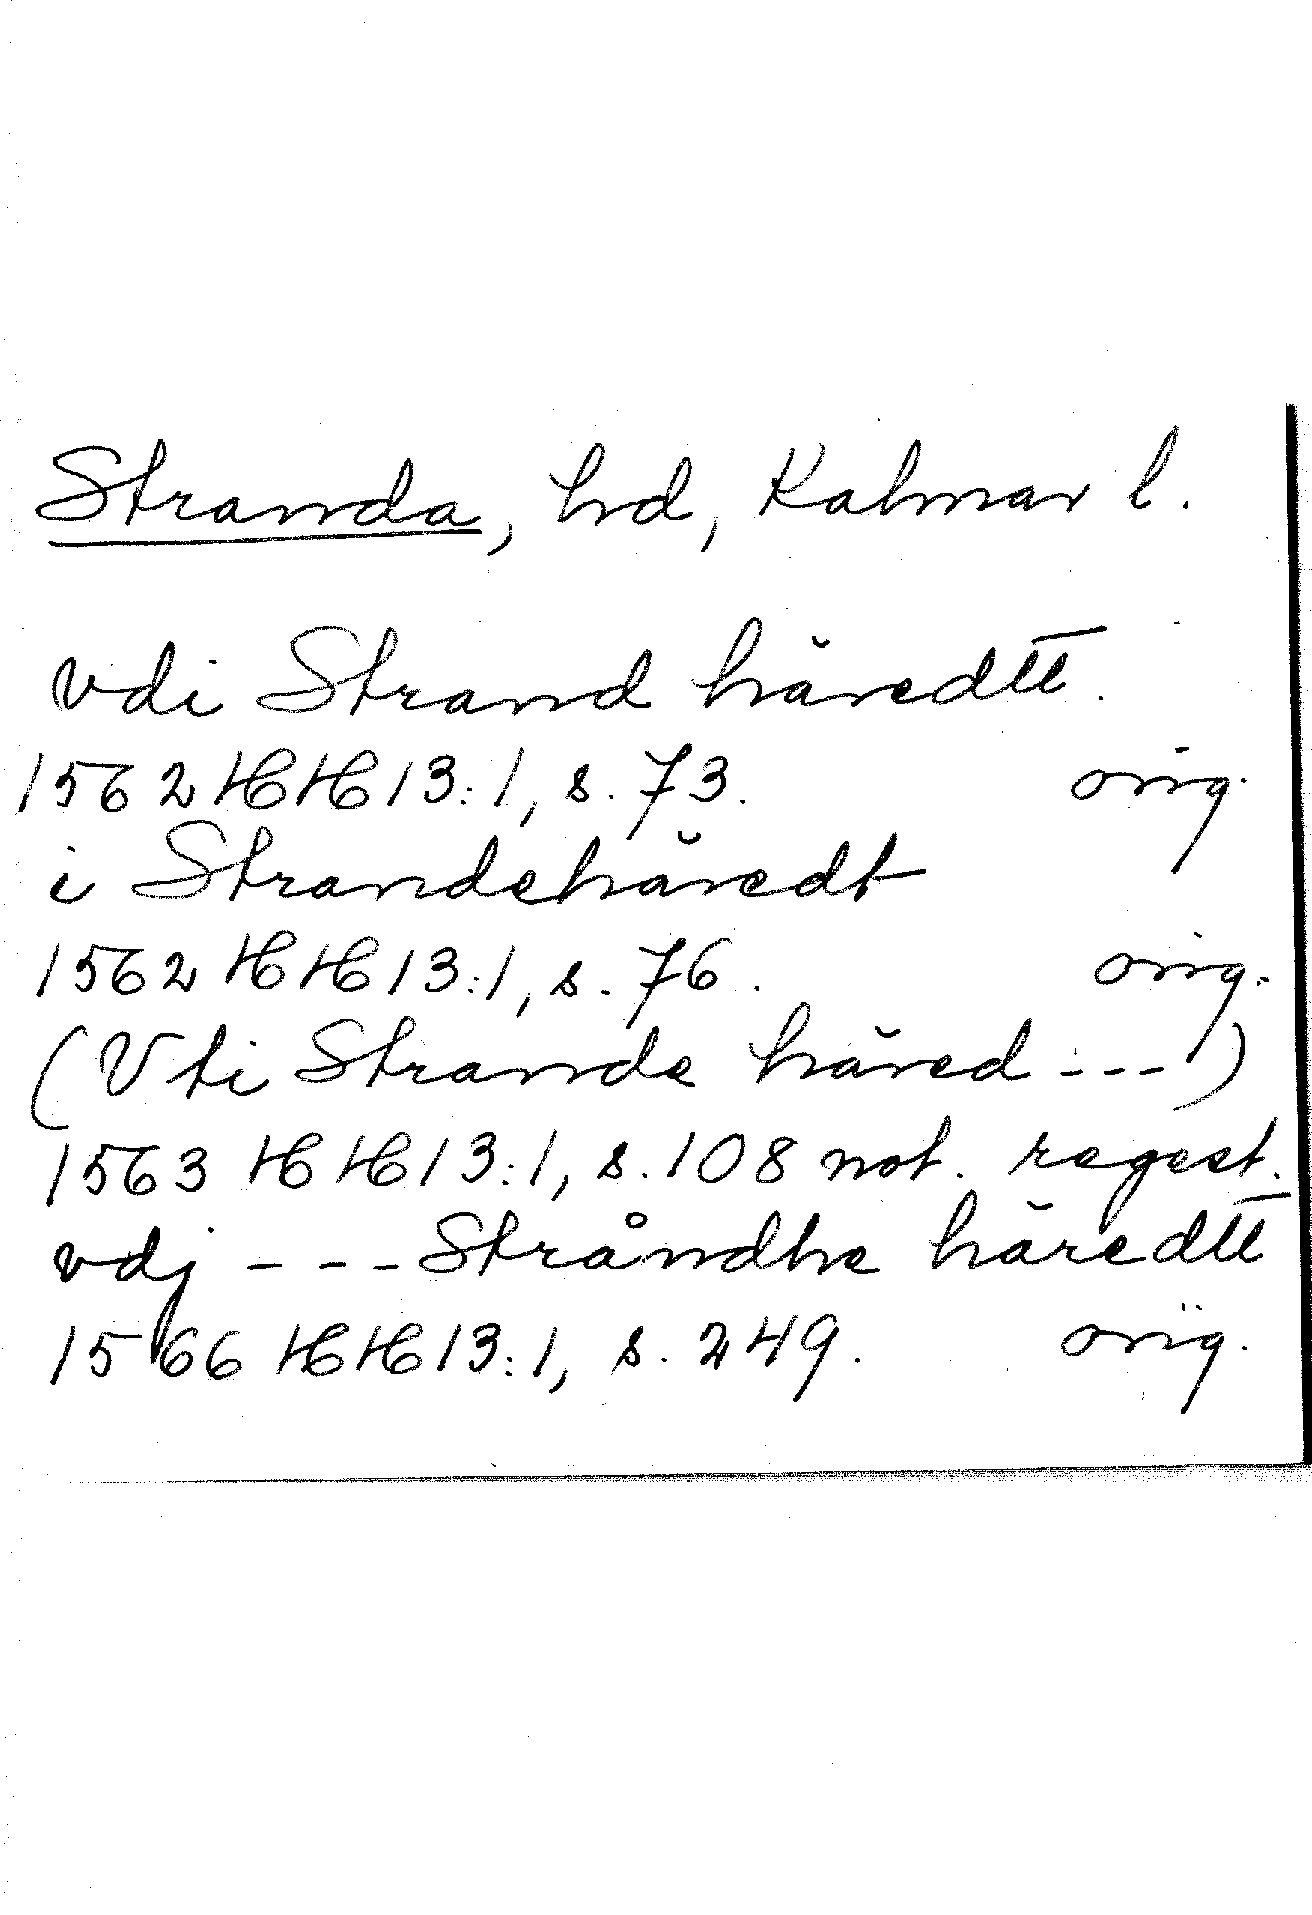 Stranda, hd, Kalmar l.
vdi Strand häredtt.
1562 HH 13:1, s. 73. orig.
i Strandehäredt
1562 HH 13:1, s. 76. orig.
(Vti Strande häred ---)
1563 HH 13:1, s. 108 not. regest.
vdj --- Stråndhe häredtt
1566 HH 13:1, s. 249. orig.